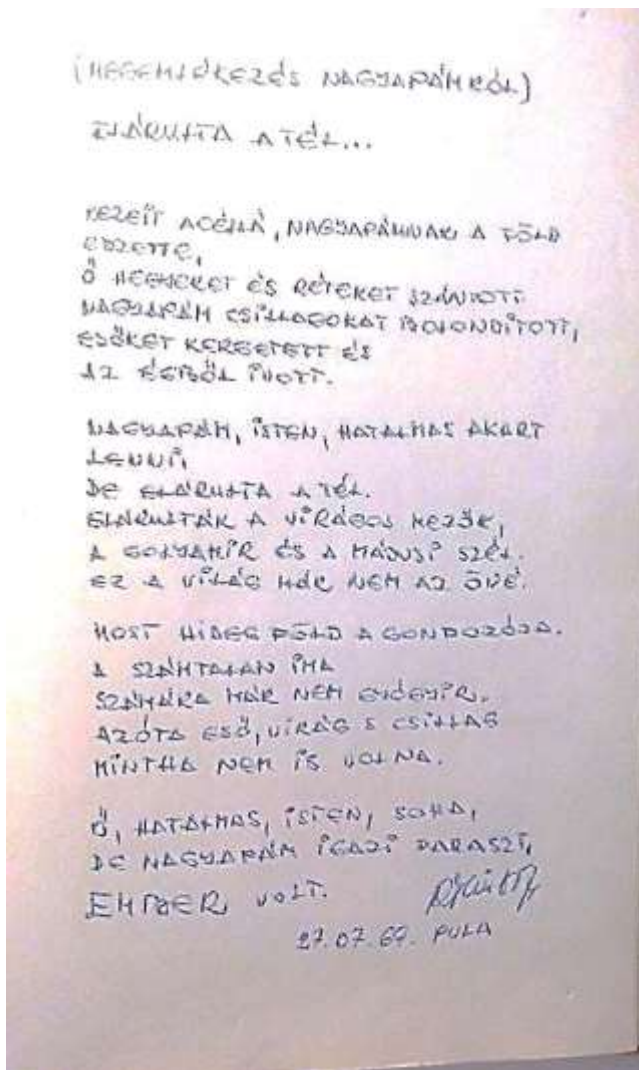 (MEGEMLÉKEZÉS NAGYAPÁMRÓL)
ELÁRULTA A TÉL...
KEZEIT ACÉLLÁ, NAGYAPÁMNAK A FÖLD
EDZETTE,
Ő HEGYEKET ÉS RÉTEKET SZÁNTOTT
NAGYAPÁM CSILLAGOKAT BOLONDÍTOTT,
ESŐKET KERGETETT ÉS
AZ ÉGBŐL IVOTT.
NAGYAPÁM, ISTEN, HATALMAS AKART
LENNI,
DE ELÁRULTA A TÉL.
ELÁRULTÁK A VIRÁGOS MEZŐK,
A GÓLYAHÍR ÉS A MÁJUSI SZÉL.
EZ A VILÁG MÁR NEM AZ ÖVÉ.
MOST HIDEG FÖLD A GONDOZÓJA.
A SZÁMTALAN IMA
SZÁMÁRA MÁR NEM GYÓGYÍR.
AZÓTA ESŐ, VIRÁG S CSILLAG
MINTHA NEM IS VOLNA.
Ő, HATALMAS, ISTEN, SOHA,
DE NAGYAPÁM IGAZI PARASZT,
EMBER VOLT.
27.07.69. PULA